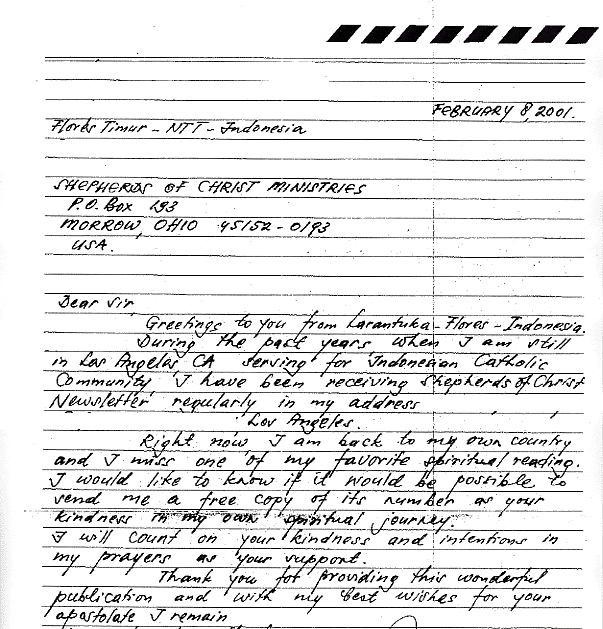 FEBRUARY 8, 2001.
Flores Timur - NTT - Indonesia
SHEPHERDS OF CHRIST MINISTRIES
P.O. Box 193
MORROW, OHIO 45152-0193
USA.
Dear Sir,
Greetings to you from Larantuka - Flores - Indonesia.
During the past years when I am still
in Los Angeles CA serving for Indonesian Catholic
Community, I have been receiving Shepherds of Christ
Newsletter regularly in my address
Los Angeles.
Right now I am back to my own country
and I miss one of my favorite spiritual reading.
I would like to know if it would be possible to
send me a free copy of its number as your
kindness in my own spiritual journey.
I will count on your kindness and intentions in
my prayers as your support.
Thank you for providing this wonderful
publication and with my best wishes for your
apostolate I remain